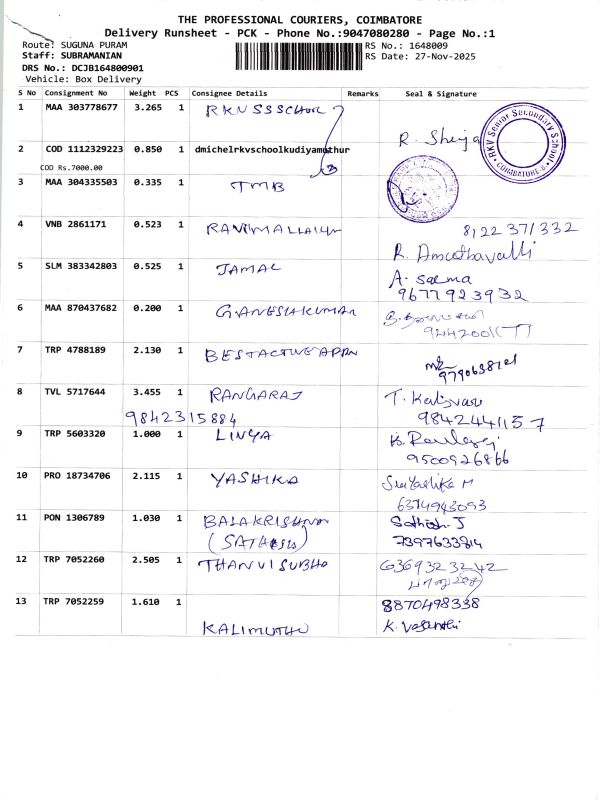 THE PROFESSIONAL COURIERS, COIMBATORE
Delivery Runsheet - PCK - Phone No.:9047080280 - Page No.:1
Route: SUGUNA PURAM RS No.: 1648009
Staff: SUBRAMANIAN RS Date: 27-Nov-2025
DRS No.: DCJB164800901
Vehicle: Box Delivery
S No Consignment No Weight PCS Consignee Details Remarks Seal & Signature
1 MAA 303778677 3.265 1 RKVSSSCHOOL
R. Sheija
RKV Senior Secondary School
COIMBATORE
2 COD 1112329223 0.850 1 dmichelrkvschoolkudiyamuthur
COD Rs.7000.00
3 MAA 304335503 0.335 1 TMB
4 VNB 2861171 0.523 1
8122 371 332
R. Amuthavalli
5 SLM 383342803 0.525 1 JAMAL A. Salma
9677923932
6 MAA 870437682 0.200 1 GANESHKUMAR
7 TRP 4788189 2.130 1
8 TVL 5717644 3.455 1 RANGARAJ
9842315884 9842441157
9 TRP 5603320 1.000 1 LINGA
9500926866
10 PRO 18734706 2.115 1 YASHIKA
6374943093
11 PON 1306789 1.030 1 BALAKRISHNAN Sathish J
(SATHESH) 7397633814
12 TRP 7052260 2.505 1 THANVISUBHA 6369323242
13 TRP 7052259 1.610 1 8870498338
KALIMUTHU K. Vasanthi